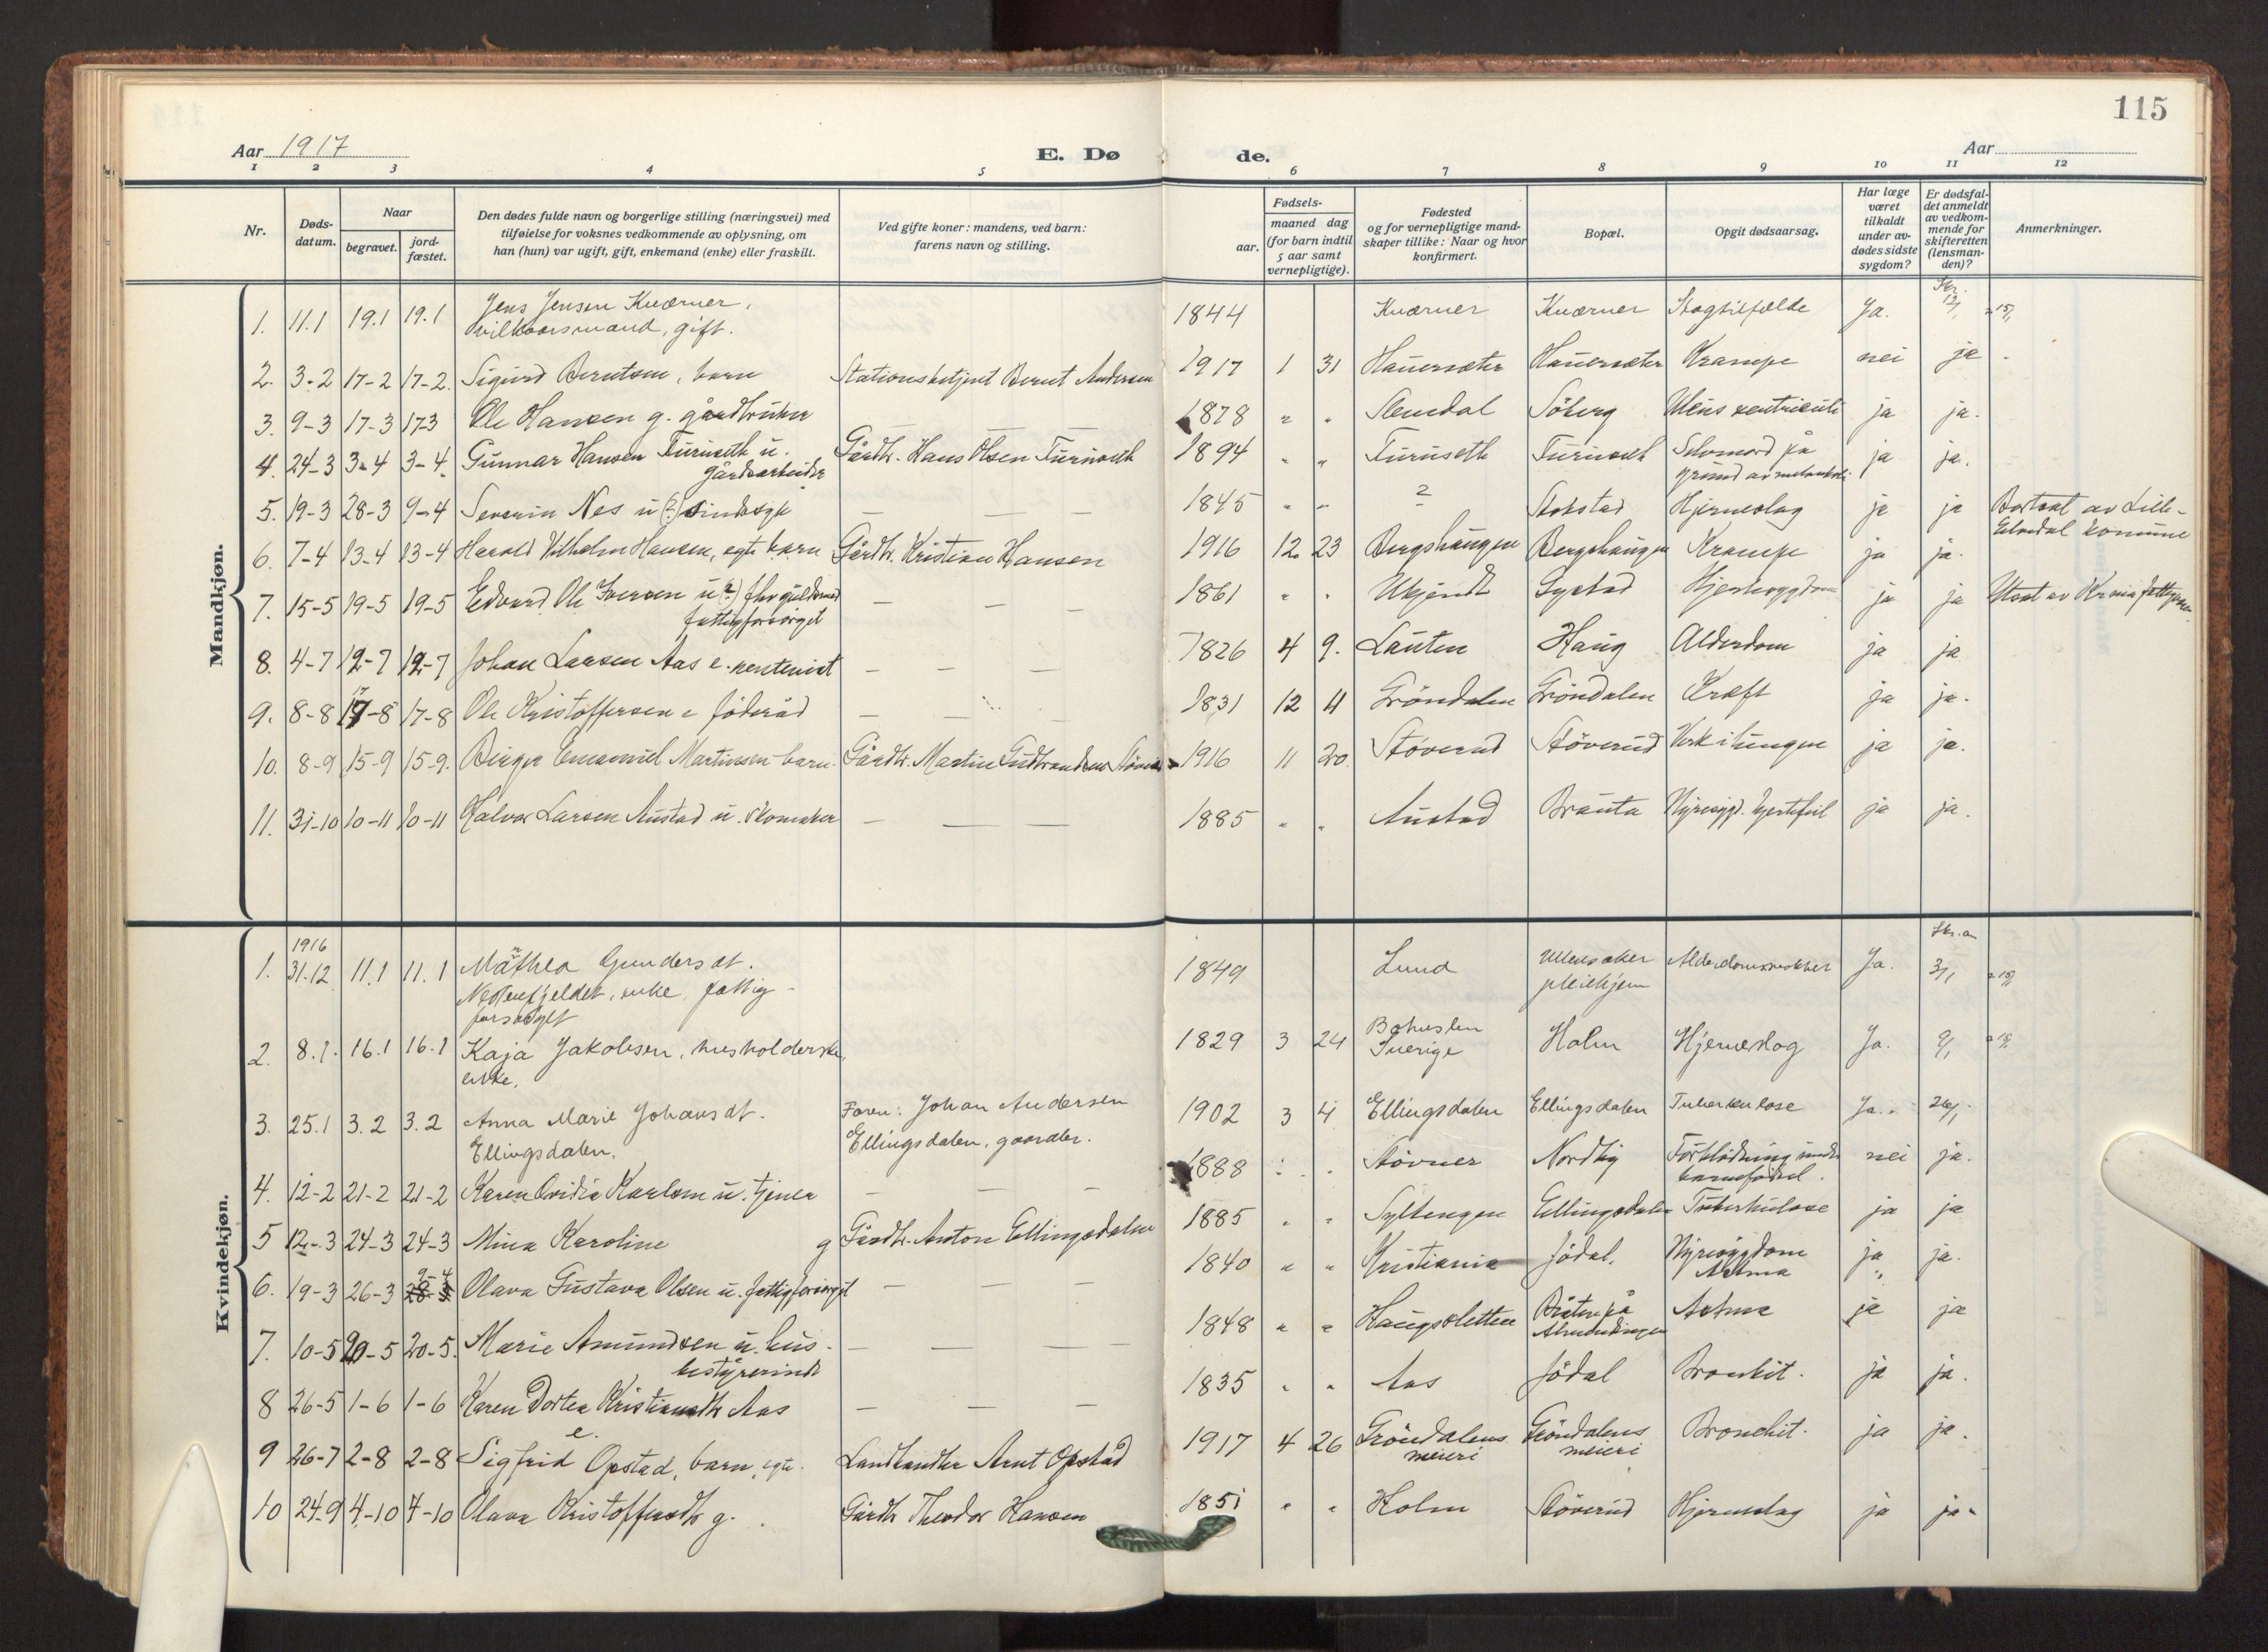 115
Aar 1917 E. Dø de. Aar
1 2 3 4 5 6 7 8 9 10 11 12
Nr.
Døds-
datum.
Naar
begravet.
jord-
fæstet.
Den dødes fulde navn og borgerlige stilling (næringsvei) med
tilføielse for voksnes vedkommende av oplysning, om
han (hun) var ugift, gift, enkemand (enke) eller fraskilt.
Ved gifte koner: mandens, ved barn:
farens navn og stilling.
Fødsels-
aar.
maaned dag
(for barn indtil
5 aar samt
vernepligtige).
Fødested
og for vernepligtige mand-
skaper tillike: Naar og hvor
konfirmert.
Bopæl.
Opgit dødsaarsag.
Har læge
været
tilkaldt
under av-
dødes sidste
sygdom?
Er dødsfal-
det anmeldt
av vedkom-
mende for
skifteretten
(lensman-
den)?
Anmerkninger.
Mandkjøn.
1. 11.1 19.1 19.1 Jens Jensen Kværner,
vilkaarsmand, gift.
1844 Kværner Kværner Slagtilfælde Ja.
2. 3-2 17-2 17-2. Sigurd Berntsen, barn Stationsbetjent Bernt Andersen 1917 1 31 Hauersæter Hauersæter Krampe nei ja
3. 9-3 17-3 17-3 Ole Hansen g. gårdbruker 1878 " " Stendal Söberg Ulcus ventriculi ja ja.
4. 24-3 3-4 3-4. Gunnar Hansen Furuseth u.
gårdsarbeider
Gårdbr. Hans Olsen Furuseth 1894 " " Furuseth Furuseth Selvmord på
grund av melankoli
ja ja.
5. 19-3 28-3 9-4 Severin Nes u (?) sindssyk — — — 1845 " " ? Stokstad Hjerneslag ja ja Bortsat av Lille-
Elvedal komune
6. 7-4 13-4 13-4 Harald Vilhelm Hansen, egte barn Gårdbr. Kristian Hansen 1916 12 23 Bergshaugen Bergshaugen Krampe ja ja.
7. 15-5 19-5 19-5 Edvard Ole Iversen u (?) fhv guldsmed
fattigforsörget
— — — 1861 " " Ukjendt Systad ja ja
8. 4-7 12-7 12-7 Johan Larsen Aas e. rentenist — — — 1826 4 9. Lauten Haug Alderdom ja ja
9. 8-8 17-8 17-8 Ole Kristoffersen e föderåd — 1831 12 4 Gröndalen Gröndalen Kræft ja ja.
10. 8-9 15-9 15-9. Birger Emanuel Martinsen barn. Gårdbr. Martin Gudbrandsen 1916 11 20 Stöverud Stöverud Verk i lungen ja ja.
11. 31-10 10-11 10-11 Halvor Larsen Austad u. skomaker — — — 1885 " " Austad Brauta Nyresygd. hjertefeil ja ja.
Kvindekjøn.
1. 1916
31.12 11.1 11.1 Mathea Gundersdt.
enke, fattig-
forsørget
1849 Lund Ullensaker
pleiehjem
Alderdomssvækkelse Ja. 3/1
2. 8.1. 16.1 16.1 Kaja Jakobsen, husholderske,
enke.
1829 3 24 Bohuslen
Sverige
Holm Hjerneslag Ja. 9/1
3. 25.1 3.2 3.2 Anna Marie Johansdt.
Ellingsdalen.
Faren: Johan Andersen
Ellingsdalen, gaardbr.
1902 3 4 Ellingsdalen Ellingsdalen Tuberkulose Ja. 26/1
4. 12-2 21-2 21-2 Karen Ovidia Karlsen u. tjener — — — 1888 " " Stövner Nordby Forblödning under
barnefödsel.
nei ja.
5 12-3 24-3 24-3 Mina Karoline g Gårdbr. Anton Ellingsdalen 1885 " " Syltengen Ellingsdalen Tuberkulose ja ja
6. 19-3 26-3 9-4 Olava Gustava Olsen u. fattigforsörget — — — 1840 " " Kristiania Jödal. Nyresygdom
Astma
ja ja.
7. 10-5 20-5 20-5. Marie Amundsen u. hus-
bestyrerinde
— — — 1848 " " Haugssletten Bråten på
Almenningen
Astma ja ja
8 26-5 1-6 1-6 Karen Dortea Kristiansdtr Aas
e.
— — — 1835 " " Aas Jödal Bronkit. ja ja.
9 26-7 2-8 2-8 Sigfrid Opstad, barn, egte. Landhandler Arnt Opstad 1917 4 26 Gröndalens
meieri
Gröndalens
meieri
Bronchit. ja ja.
10 24-9 4-10 4-10 Olava Kristoffersdtr g. Gårdbr Theodor Hansen 1851 " " Holm Stöverud Hjerneslag ja ja.